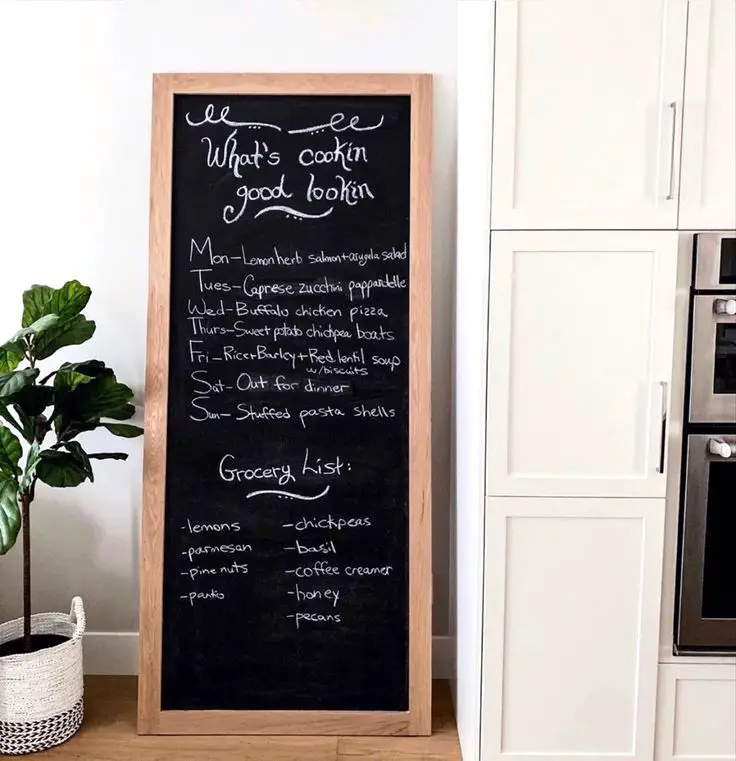 What's cookin
good lookin
Mon-Lemon herb salmon+arugula salad
Tues-Caprese zucchini pappardelle
Wed-Buffalo chicken pizza
Thurs-Sweet potato chickpea boats
Fri-Rice+Barley+Red lentil soup
w/biscuits
Sat-Out for dinner
Sun-Stuffed pasta shells
Grocery List:
-lemons
-parmesan
-pine nuts
-panko
-chickpeas
-basil
-coffee creamer
-honey
-pecans